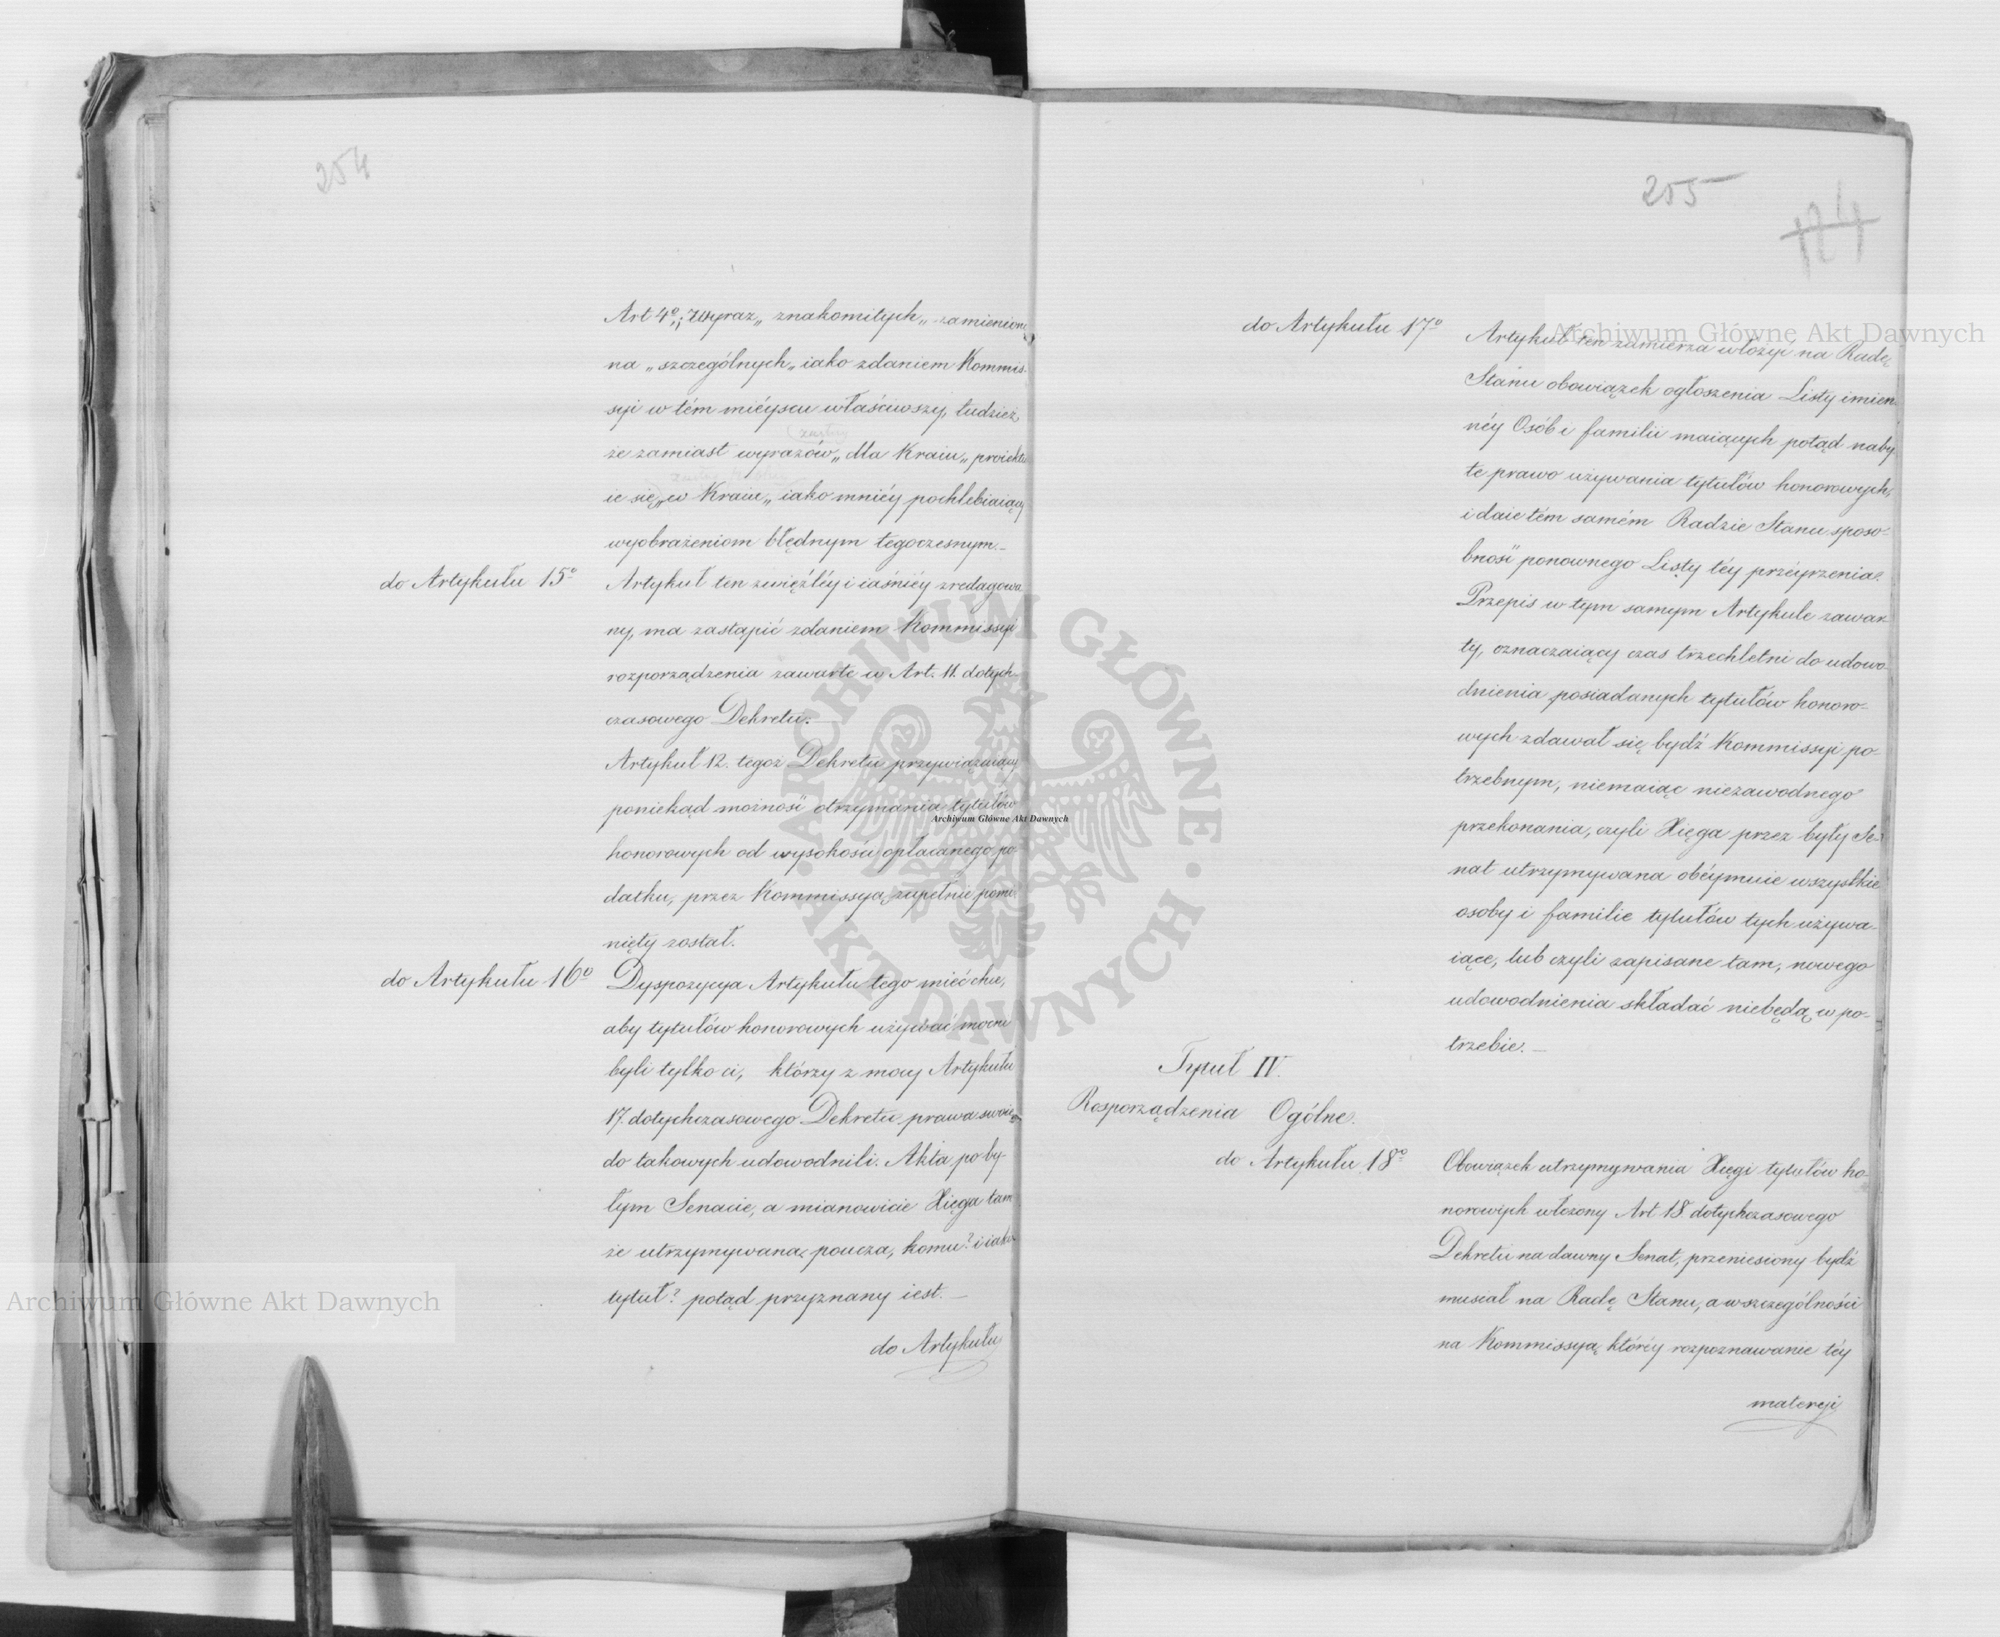 254
Art 4º; Wyraz „ znakomitych „ zamieniono
na „ szczególnych „ iako zdaniem Kommis-
syi w tém miéyscu właściwszy, tudzież
że zamiast wyrazów „ dla Kraiu „ proiektu
ie się „ w Kraiu „ iako mniéy pochlebiaiący
wyobrażeniom błędnym tegoczesnym. –
do Artykułu 15º
Artykuł ten zwięźléy i iaśniéy zredagowa
ny, ma zastąpić zdaniem Kommissyi
rozporządzenia zawarte w Art. 11. dotych-
czasowego Dekretu. –
Artykuł 12. tegoż Dekretu przywiązuiący
poniekąd możność otrzymania tytułów
honorowych od wysokości opłacanego po-
datku, przez Kommissyą zupełnie pomi-
nięty został.
do Artykułu 16º
Dyspozycya Artykułu tego mieć chce,
aby tytułów honorowych używać mocni
byli tylko ci, którzy z mocy Artykułu
17. dotychczasowego Dekretu prawa swoie
do takowych udowodnili. Akta po by-
łym Senacie, a mianowicie Xięga tam
że utrzymywana, poucza, komu? i iaki
tytuł? potąd przyznany iest. –
do Artykułu
255
do Artykułu 17º
Artykuł ten zamierza włożyć na Radę
Stanu obowiązek ogłoszenia Listy imien-
néy Osób i familii maiących potąd naby
te prawo używania tytułów honorowych,
i daie tém samém Radzie Stanu sposo-
bność ponownego Listy téy przéyrzenia.
Przepis w tym samym Artykule zawar-
ty, oznaczaiący czas trzechletni do udowo-
dnienia posiadanych tytułów honoro-
wych zdawał się bydź Kommissyi po-
trzebnym, niemaiąc niezawodnego
przekonania, czyli Xięga przez były Se-
nat utrzymywana obéymuie wszystkie
osoby i familie tytułów tych używa-
iące, lub czyli zapisane tam, nowego
udowodnienia składać niebędą w po-
trzebie. –
Tytuł IV.
Rozporządzenia Ogólne.
do Artykułu 18º
Obowiązek utrzymywania Xięgi tytułów ho-
norowych włożony Art 18 dotychczasowego
Dekretu na dawny Senat, przeniesiony bydź
musiał na Radę Stanu, a w szczególności
na Kommissyą, któréy rozpoznawanie téy
materyi
Archiwum Główne Akt Dawnych
Archiwum Główne Akt Dawnych
Archiwum Główne Akt Dawnych
ARCHIWUM GŁÓWNE · AKT DAWNYCH ·